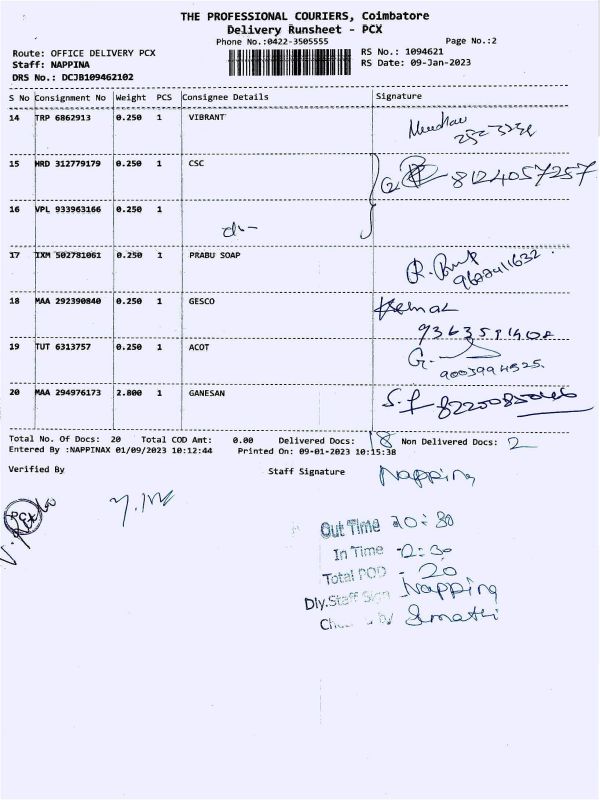 THE PROFESSIONAL COURIERS, Coimbatore
Delivery Runsheet - PCX
Phone No.:0422-3505555 Page No.:2
Route: OFFICE DELIVERY PCX RS No.: 1094621
Staff: NAPPINA RS Date: 09-Jan-2023
DRS No.: DCJB109462102
S No Consignment No Weight PCS Consignee Details Signature
14 TRP 6862913 0.250 1 VIBRANT
15 MRD 312779179 0.250 1 CSC 8124057257
16 VPL 933963166 0.250 1
17 IXM 502781061 0.250 1 PRABU SOAP
18 MAA 292390840 0.250 1 GESCO
19 TUT 6313757 0.250 1 ACOT G.
20 MAA 294976173 2.800 1 GANESAN
Total No. Of Docs: 20 Total COD Amt: 0.00 Delivered Docs: 18 Non Delivered Docs: 2
Entered By :NAPPINAX 01/09/2023 10:12:44 Printed On: 09-01-2023 10:15:38
Verified By Staff Signature Nappina
PCX
Out Time
In Time
Total POD - 20
Dly.Staff Sign Nappina
by